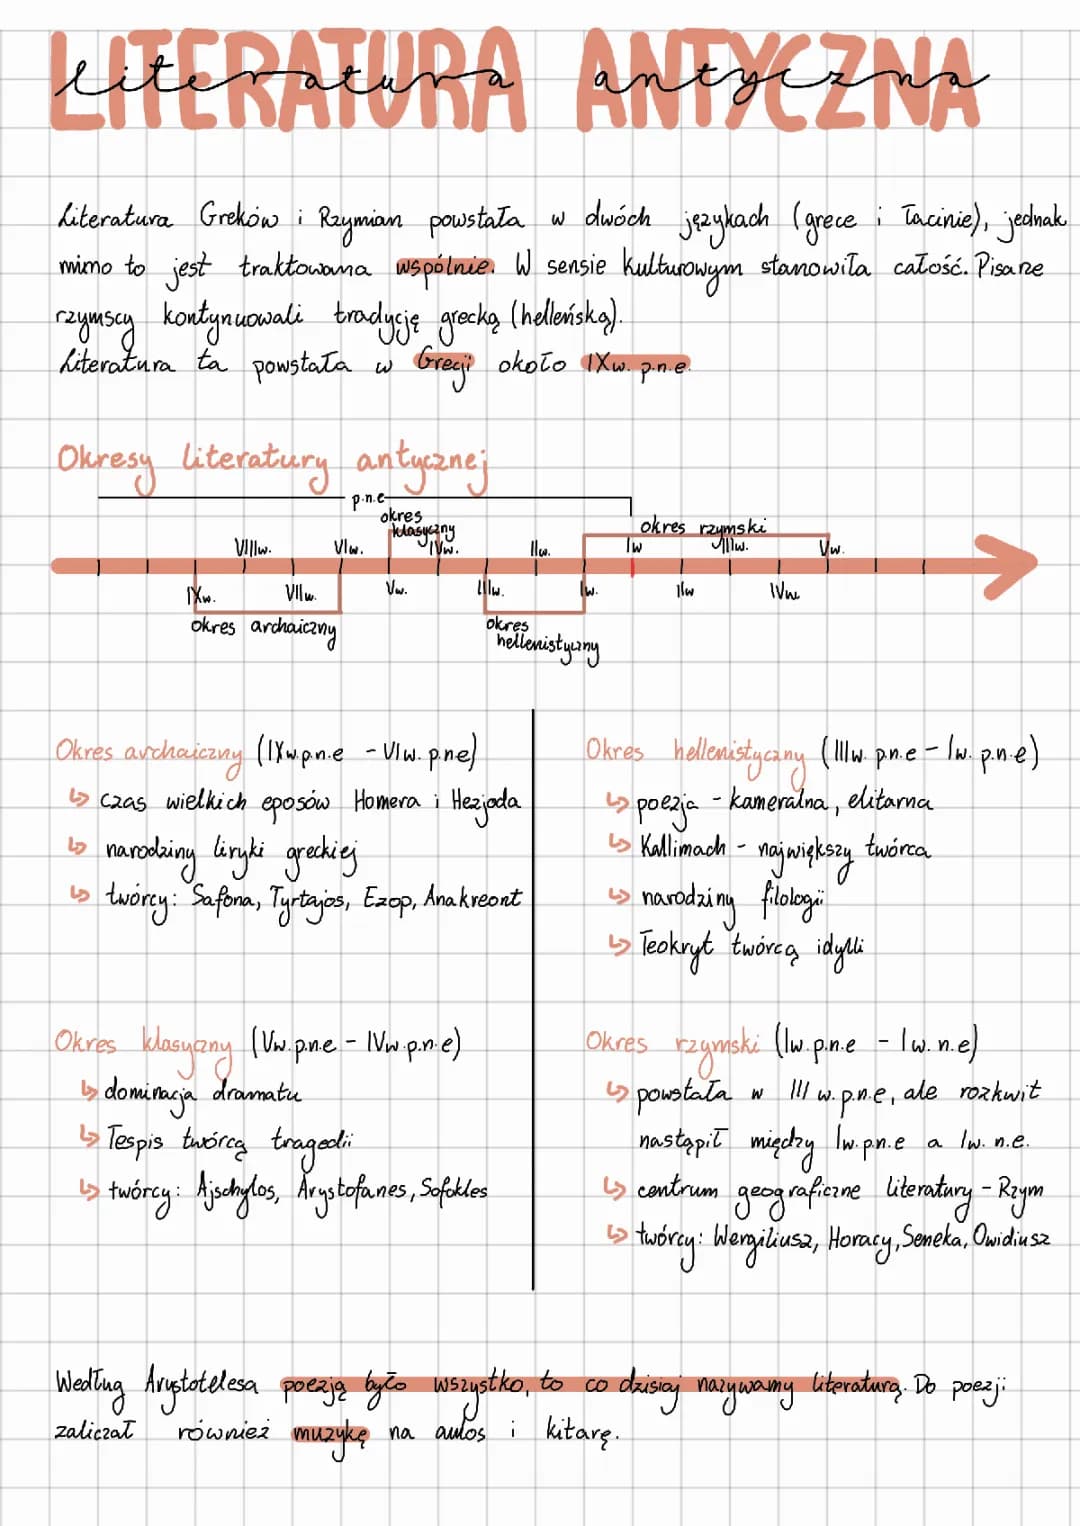 LITERATURA ANTYCZNA
literatura antyczna
Literatura Greków i Rzymian powstała w dwóch językach (grece i łacinie), jednak
mimo to jest traktowana wspólnie. W sensie kulturowym stanowiła całość. Pisarze
rzymscy kontynuowali tradycję grecką (helleńską).
Literatura ta powstała w Grecji około IXw. p.n.e.
Okresy literatury antycznej
p.n.e
okres
klasyczny
okres rzymski
VIIIw. VIw. IVw. IIw. Iw IIIw. Vw.
IXw. VIIw. Vw. IIIw. Iw. IIw IVw
okres archaiczny
okres
hellenistyczny
Okres archaiczny (IXw.p.n.e - VIw. p.n.e)
↳ czas wielkich eposów Homera i Hezjoda
↳ narodziny liryki greckiej
↳ twórcy: Safona, Tyrtajos, Ezop, Anakreont
Okres hellenistyczny (IIIw. p.n.e - Iw. p.n.e)
↳ poezja - kameralna, elitarna
↳ Kallimach - największy twórca
↳ narodziny filologii
↳ Teokryt twórcą idylli
Okres klasyczny (Vw.p.n.e - IVw.p.n.e)
↳ dominacja dramatu
↳ Tespis twórcą tragedii
↳ twórcy: Ajschylos, Arystofanes, Sofokles
Okres rzymski (Iw.p.n.e - Iw. n.e)
↳ powstała w III w. p.n.e, ale rozkwit
nastąpił między Iw.p.n.e a Iw. n.e.
↳ centrum geograficzne literatury - Rzym
↳ twórcy: Wergiliusz, Horacy, Seneka, Owidiusz
Według Arystotelesa poezją było wszystko, to co dzisiaj nazywamy literaturą. Do poezji
zaliczał również muzykę na aulos i kitarę.